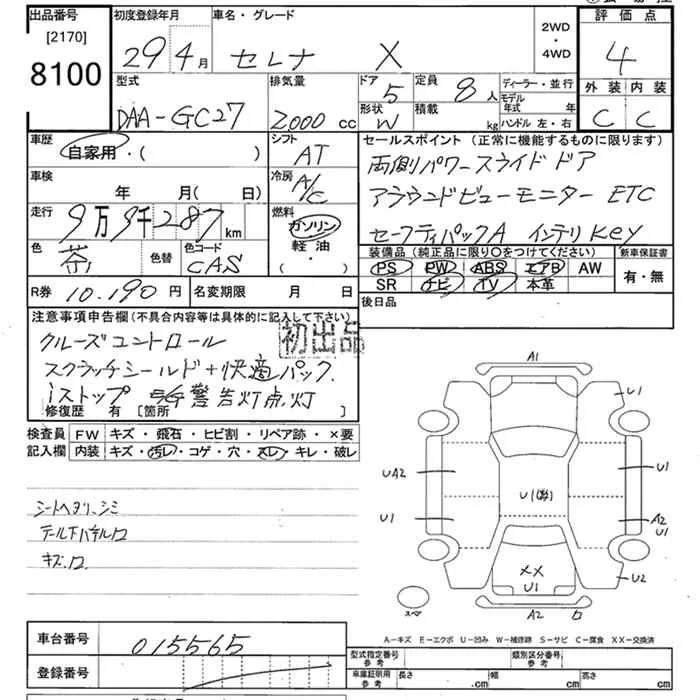 出品番号 初度登録年月 車名・グレード 2WD・4WD 評価点
[2170]
8100
29 4月 セレナ X 4
型式 排気量 ドア 定員 ディーラー・並行 外装 内装
DAA-GC27 2000cc 5 8人 モデル年式 年 C C
形状 積載 ハンドル 左・右
W kg
車歴 自家用・( ) シフト AT
セールスポイント(正常に機能するものに限ります)
両側パワースライドドア
アラウンドビューモニター ETC
セーフティパックA インテリKey
車検 年 月( 日) 冷房 A/C
走行 9万9千287km 燃料 ガソリン・軽油・( )
色 茶 色替 色コード CAS
装備品(純正品に限り○をつけてください) 新車保証書
PS PW ABS エアB AW 有・無
SR ナビ TV 本革
R券 10.190円 名変期限 月 日 後日品
注意事項申告欄(不具合内容等は具体的に記入して下さい)
初出品
クルーズコントロール
スクラッチシールド+快適パック
iストップ 警告灯点灯
修復歴 有 [箇所 ]
検査員記入欄 FW キズ・飛石・ヒビ割・リペア跡・×要
内装 キズ・汚レ・コゲ・穴・スレ・キレ・破レ
シートヘタリ、シミ
キズ、ワ
A1
U1
UA2 U1
U1 A2
U1
XX U2
U1
スペア A2
A-キズ E-エクボ U-凹み W-補修跡 S-サビ C-腐食 XX-交換済
車台番号 015565
登録番号
型式指定番号 参考 類別区分番号 参考
車庫証明用 参考 長さ .cm 幅 .cm 高さ .cm